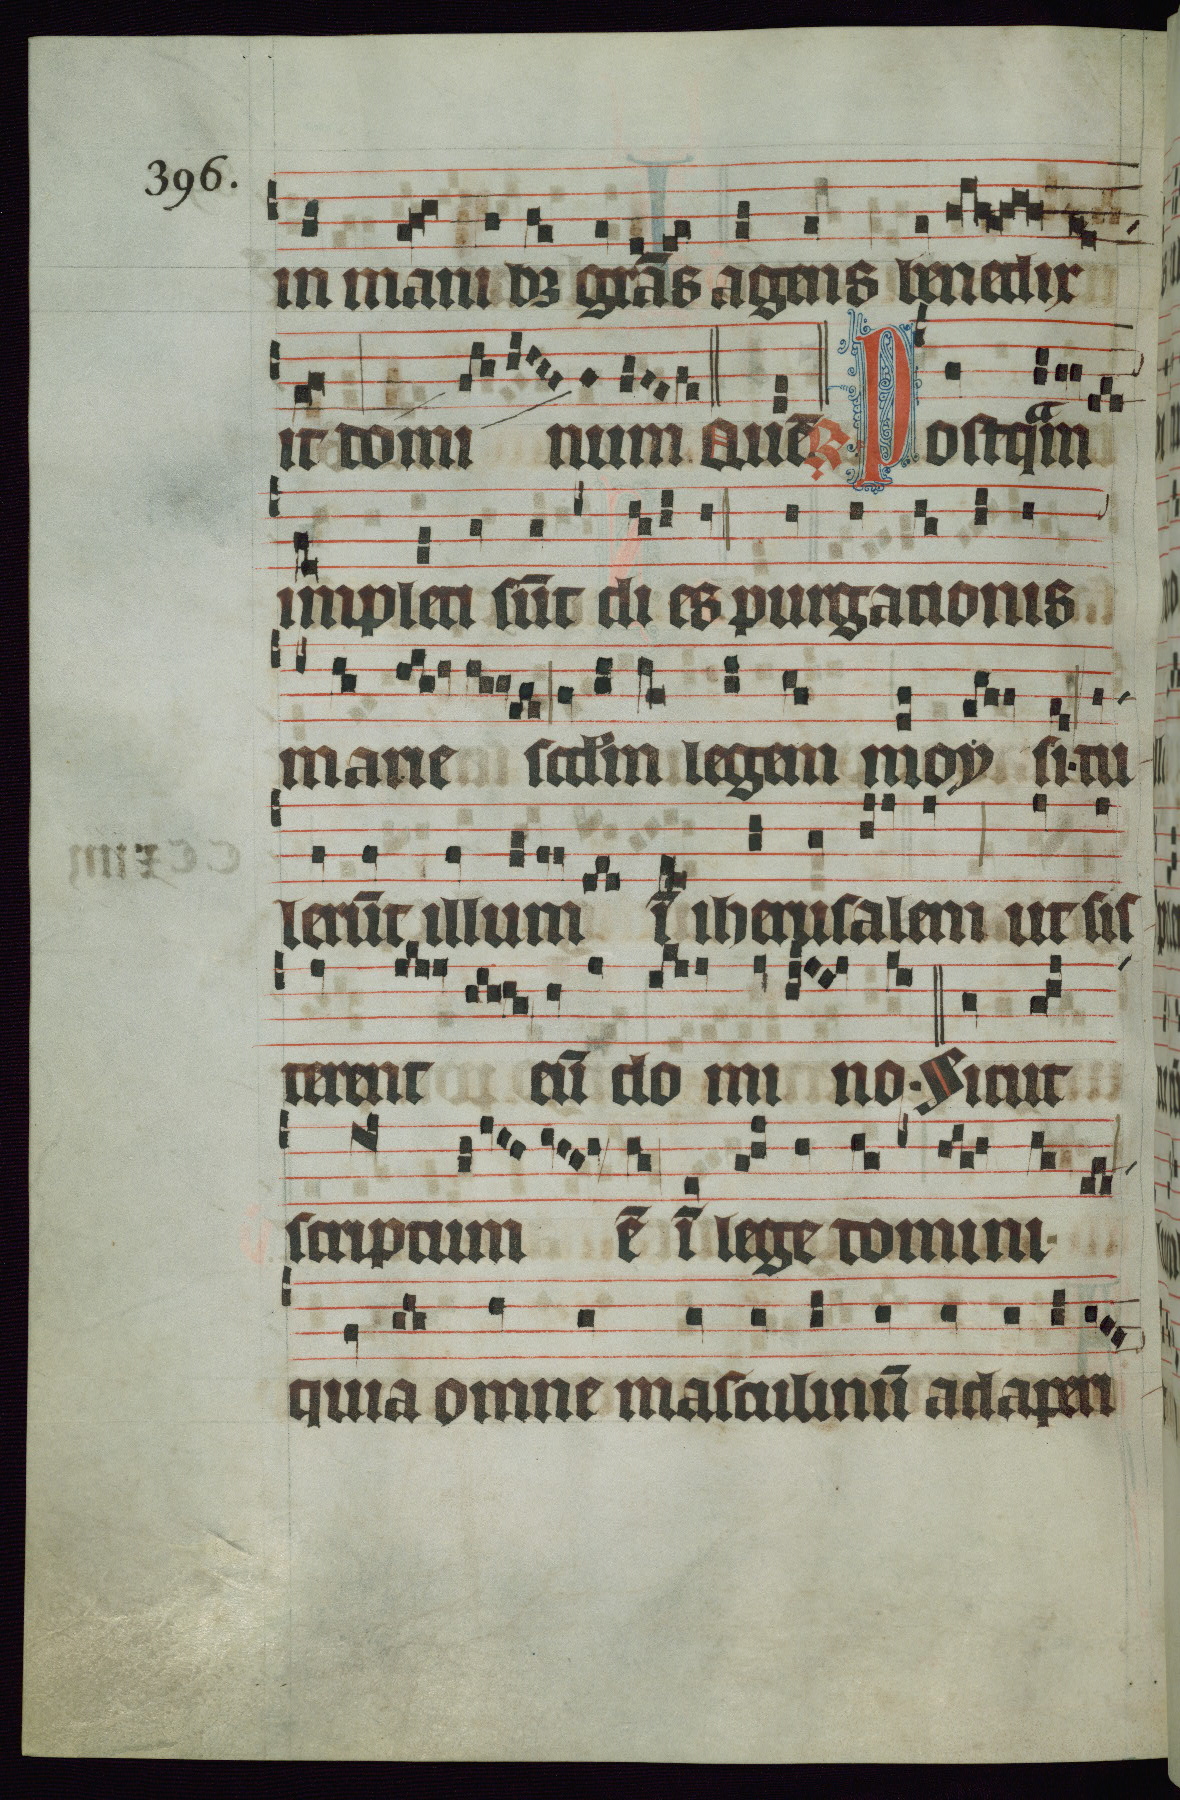 396.
in manibꝫ grās agens benedix
it domi num Quē ℟. Postqᵃm
impleti sūt di es purgationis
marie scd'm legem moy si·tu
lerūt illum ī iherusalem ut sis
terent eū do mi no·Sicut
scriptum ē ī lege domini·
quia omne masculinū adaperi